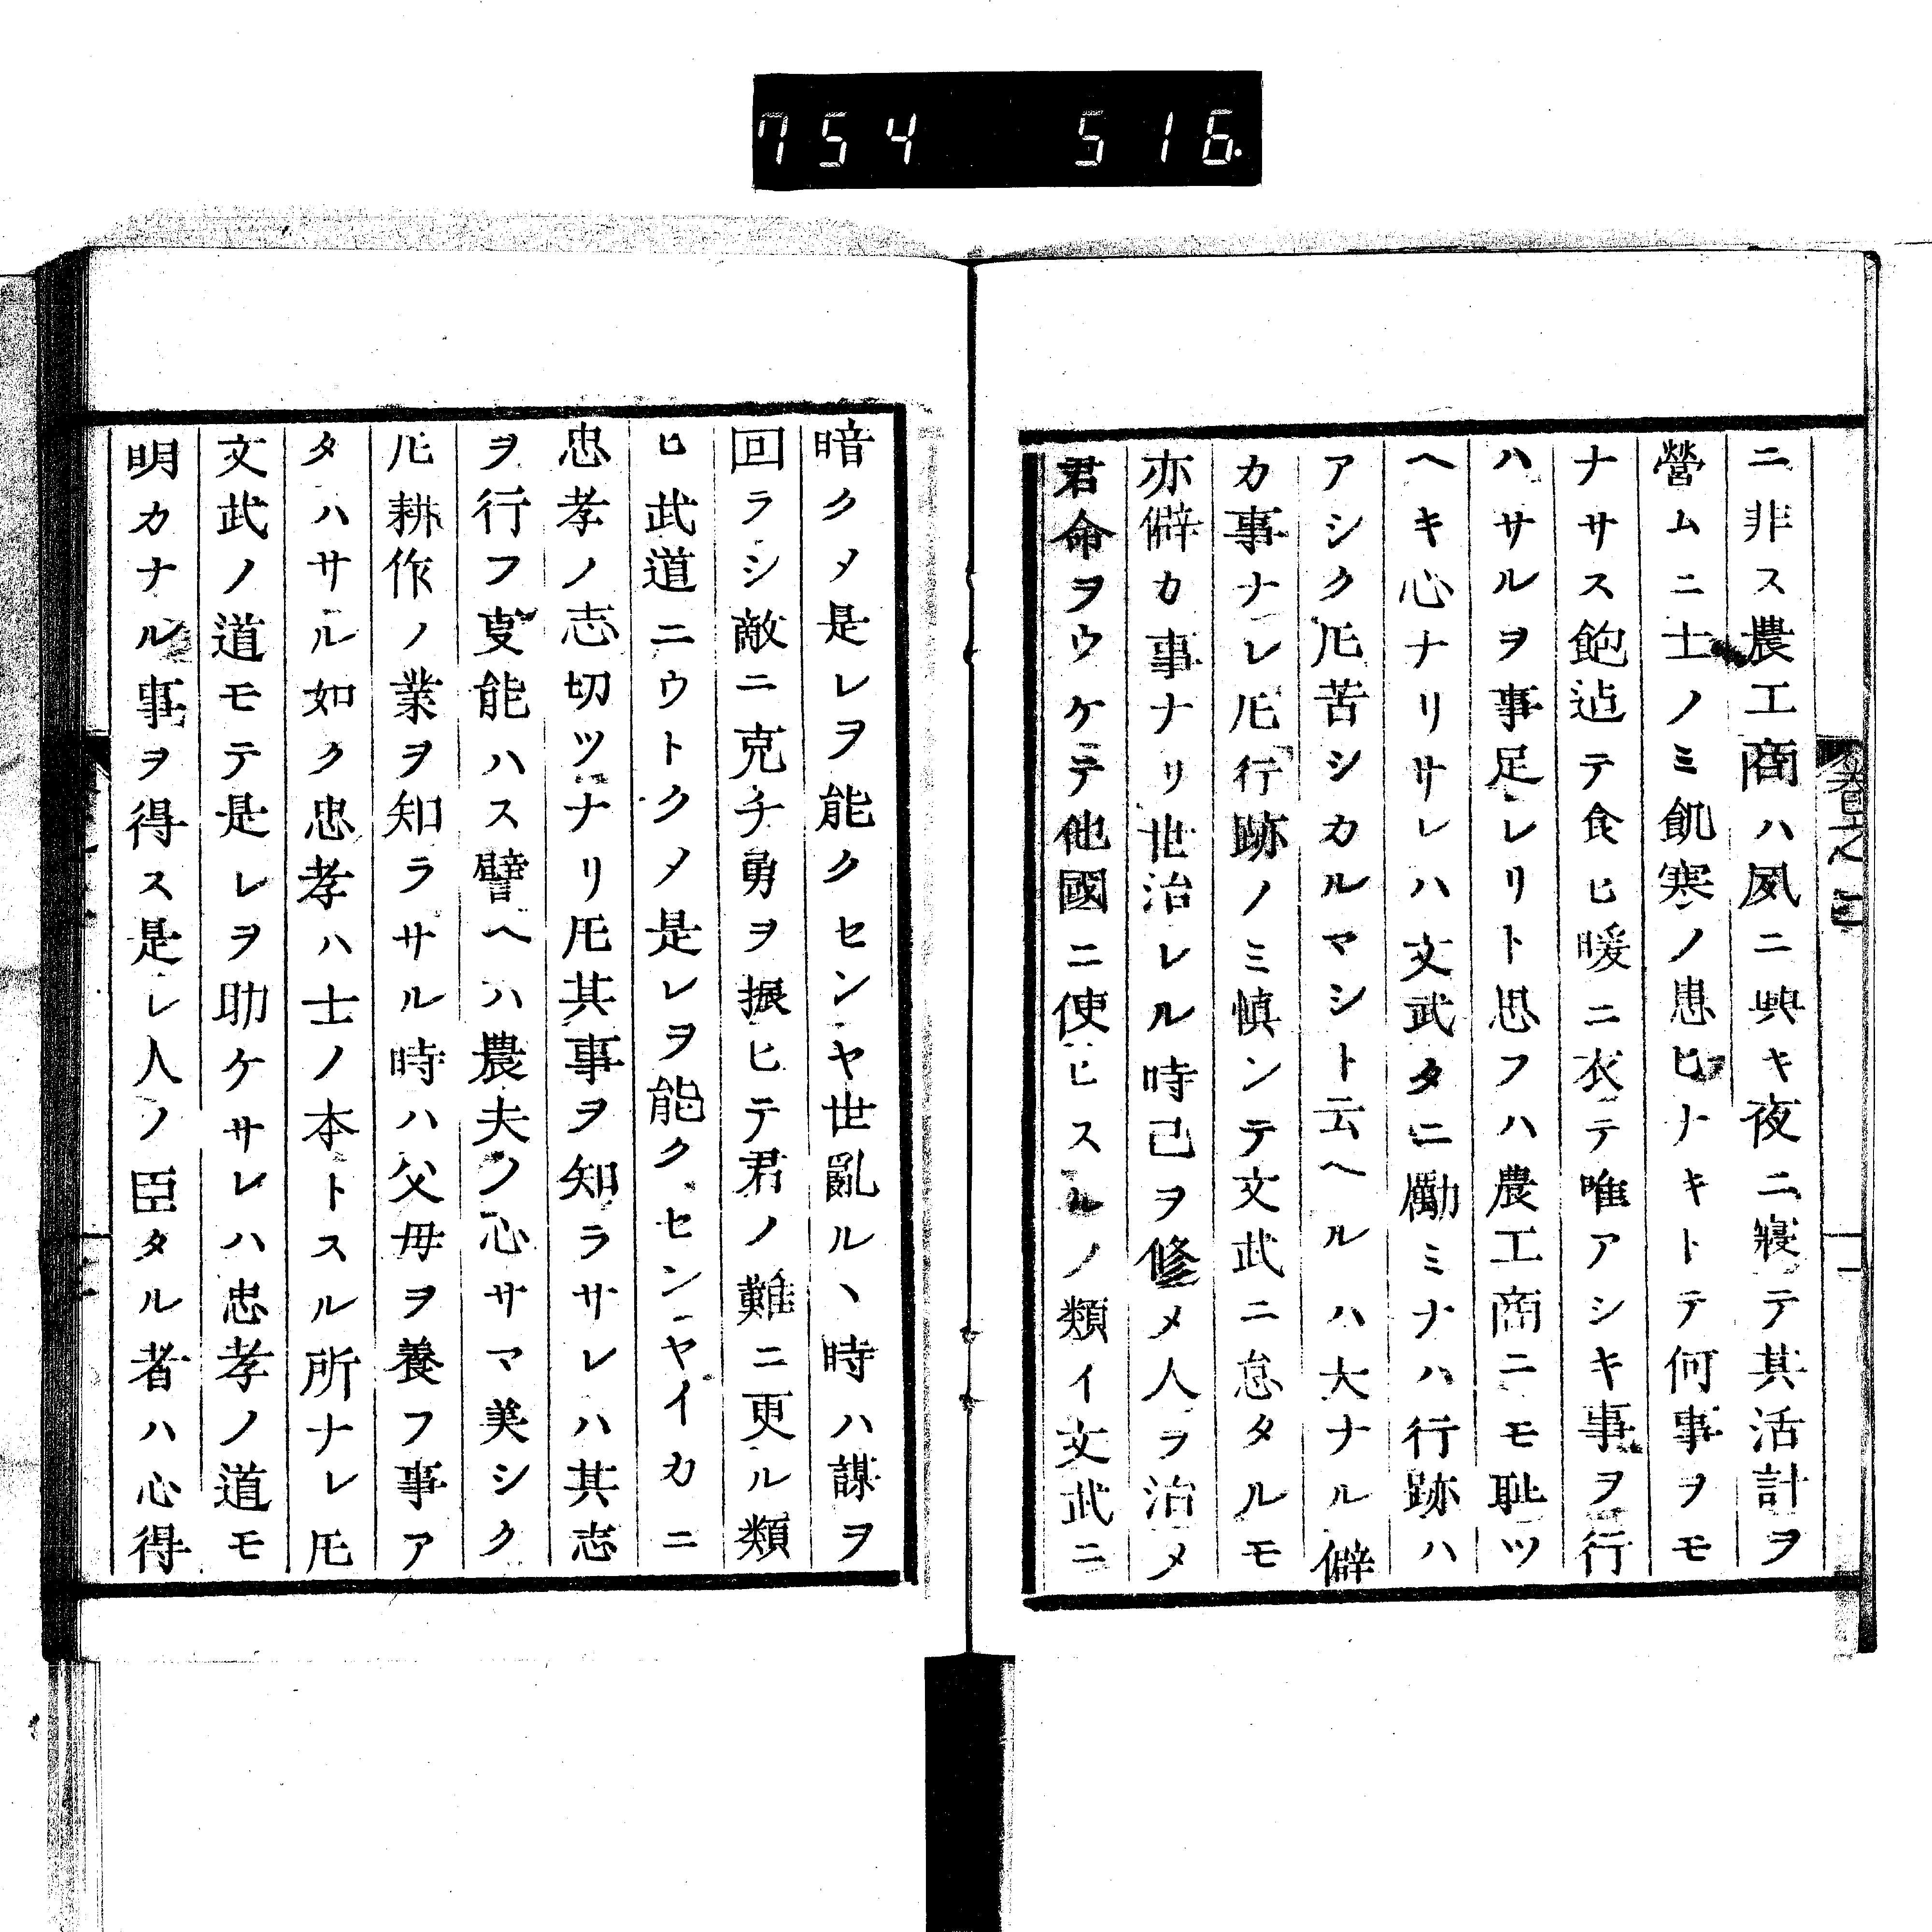 754 516.
ニ非ス農工商ハ夙ニ興キ夜ニ寢テ其活計ヲ
營ムニ士ノミ飢寒ノ患ヒナキトテ何事ヲモ
ナサス飽迠テ食ヒ暖ニ衣テ唯アシキ事ヲ行
ハサルヲ事足レリト思フハ農工商ニモ耻ツ
ヘキ心ナリサレハ文武タニ勵ミナハ行跡ハ
アシク𪜈苦シカルマシト云ヘルハ大ナル僻
カ事ナレ𪜈行跡ノミ慎ンテ文武ニ怠タルモ
亦僻カ事ナリ世治レル時己ヲ修メ人ヲ治メ
君命ヲウケテ他國ニ使ヒスルノ類イ文武ニ
暗クメ是レヲ能クセンヤ世亂ルヽ時ハ謀ヲ
回ラシ敵ニ克チ勇ヲ振ヒテ君ノ難ニ更ル類
ヒ武道ニウトクメ是レヲ能クセンヤイカニ
忠孝ノ志切ツナリ𪜈其事ヲ知ラサレハ其志
ヲ行フ叓能ハス譬ヘハ農夫ノ心サマ美シク
𪜈耕作ノ業ヲ知ラサル時ハ父母ヲ養フ事ア
タハサル如ク忠孝ハ士ノ本トスル所ナレ𪜈
文武ノ道モテ是レヲ助ケサレハ忠孝ノ道モ
明カナル事ヲ得ス是レ人ノ臣タル者ハ心得